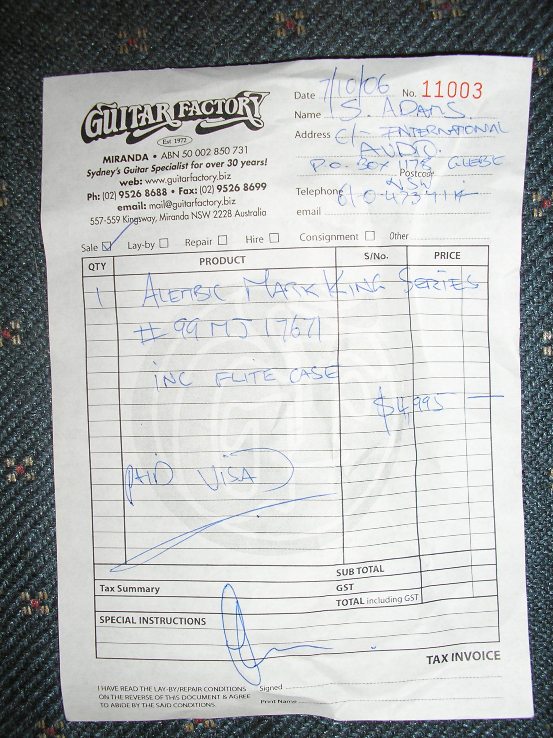 GUITAR FACTORY
Est 1972
MIRANDA • ABN 50 002 850 731
Sydney's Guitar Specialist for over 30 years!
web: www.guitarfactory.biz
Ph: (02) 9526 8688 • Fax: (02) 9526 8699
email: mail@guitarfactory.biz
557-559 Kingsway, Miranda NSW 2228 Australia
Date 7/10/06 No. 11003
Name S. ADAMS.
Address C/- INTERNATIONAL
AUDIO.
P.O. BOX 1178 GLEBE
Postcode
NSW.
Telephone
email
Sale Lay-by Repair Hire Consignment Other
QTY PRODUCT S/No. PRICE
1 ALEMBIC MARK KING SERIES
# 99MJ17671
INC FLITE CASE
$4,995 —
PAID VISA
SUB TOTAL
Tax Summary GST
TOTAL including GST
SPECIAL INSTRUCTIONS
TAX INVOICE
I HAVE READ THE LAY-BY/REPAIR CONDITIONS
ON THE REVERSE OF THIS DOCUMENT & AGREE
TO ABIDE BY THE SAID CONDITIONS.
Signed
Print Name